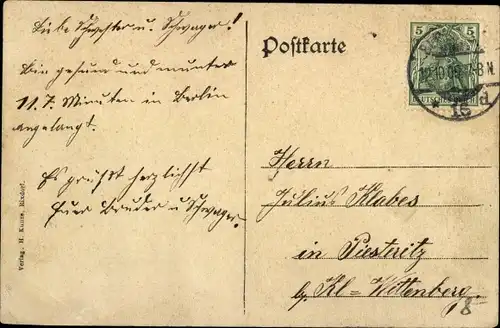 Liebe Schwester u. Schwager!
Bin gesund und munter
11.7. Minuten in Berlin
angelangt.
Es grüßt herzlichst
Euer Bruder u Schwager.
Verlag: H. Kunze, Rixdorf.
Postkarte
5 5
12.10.09. 7-8 N.
Herrn
Julius Klabes
in Piesteritz
b. Kl = Wittenberg
8